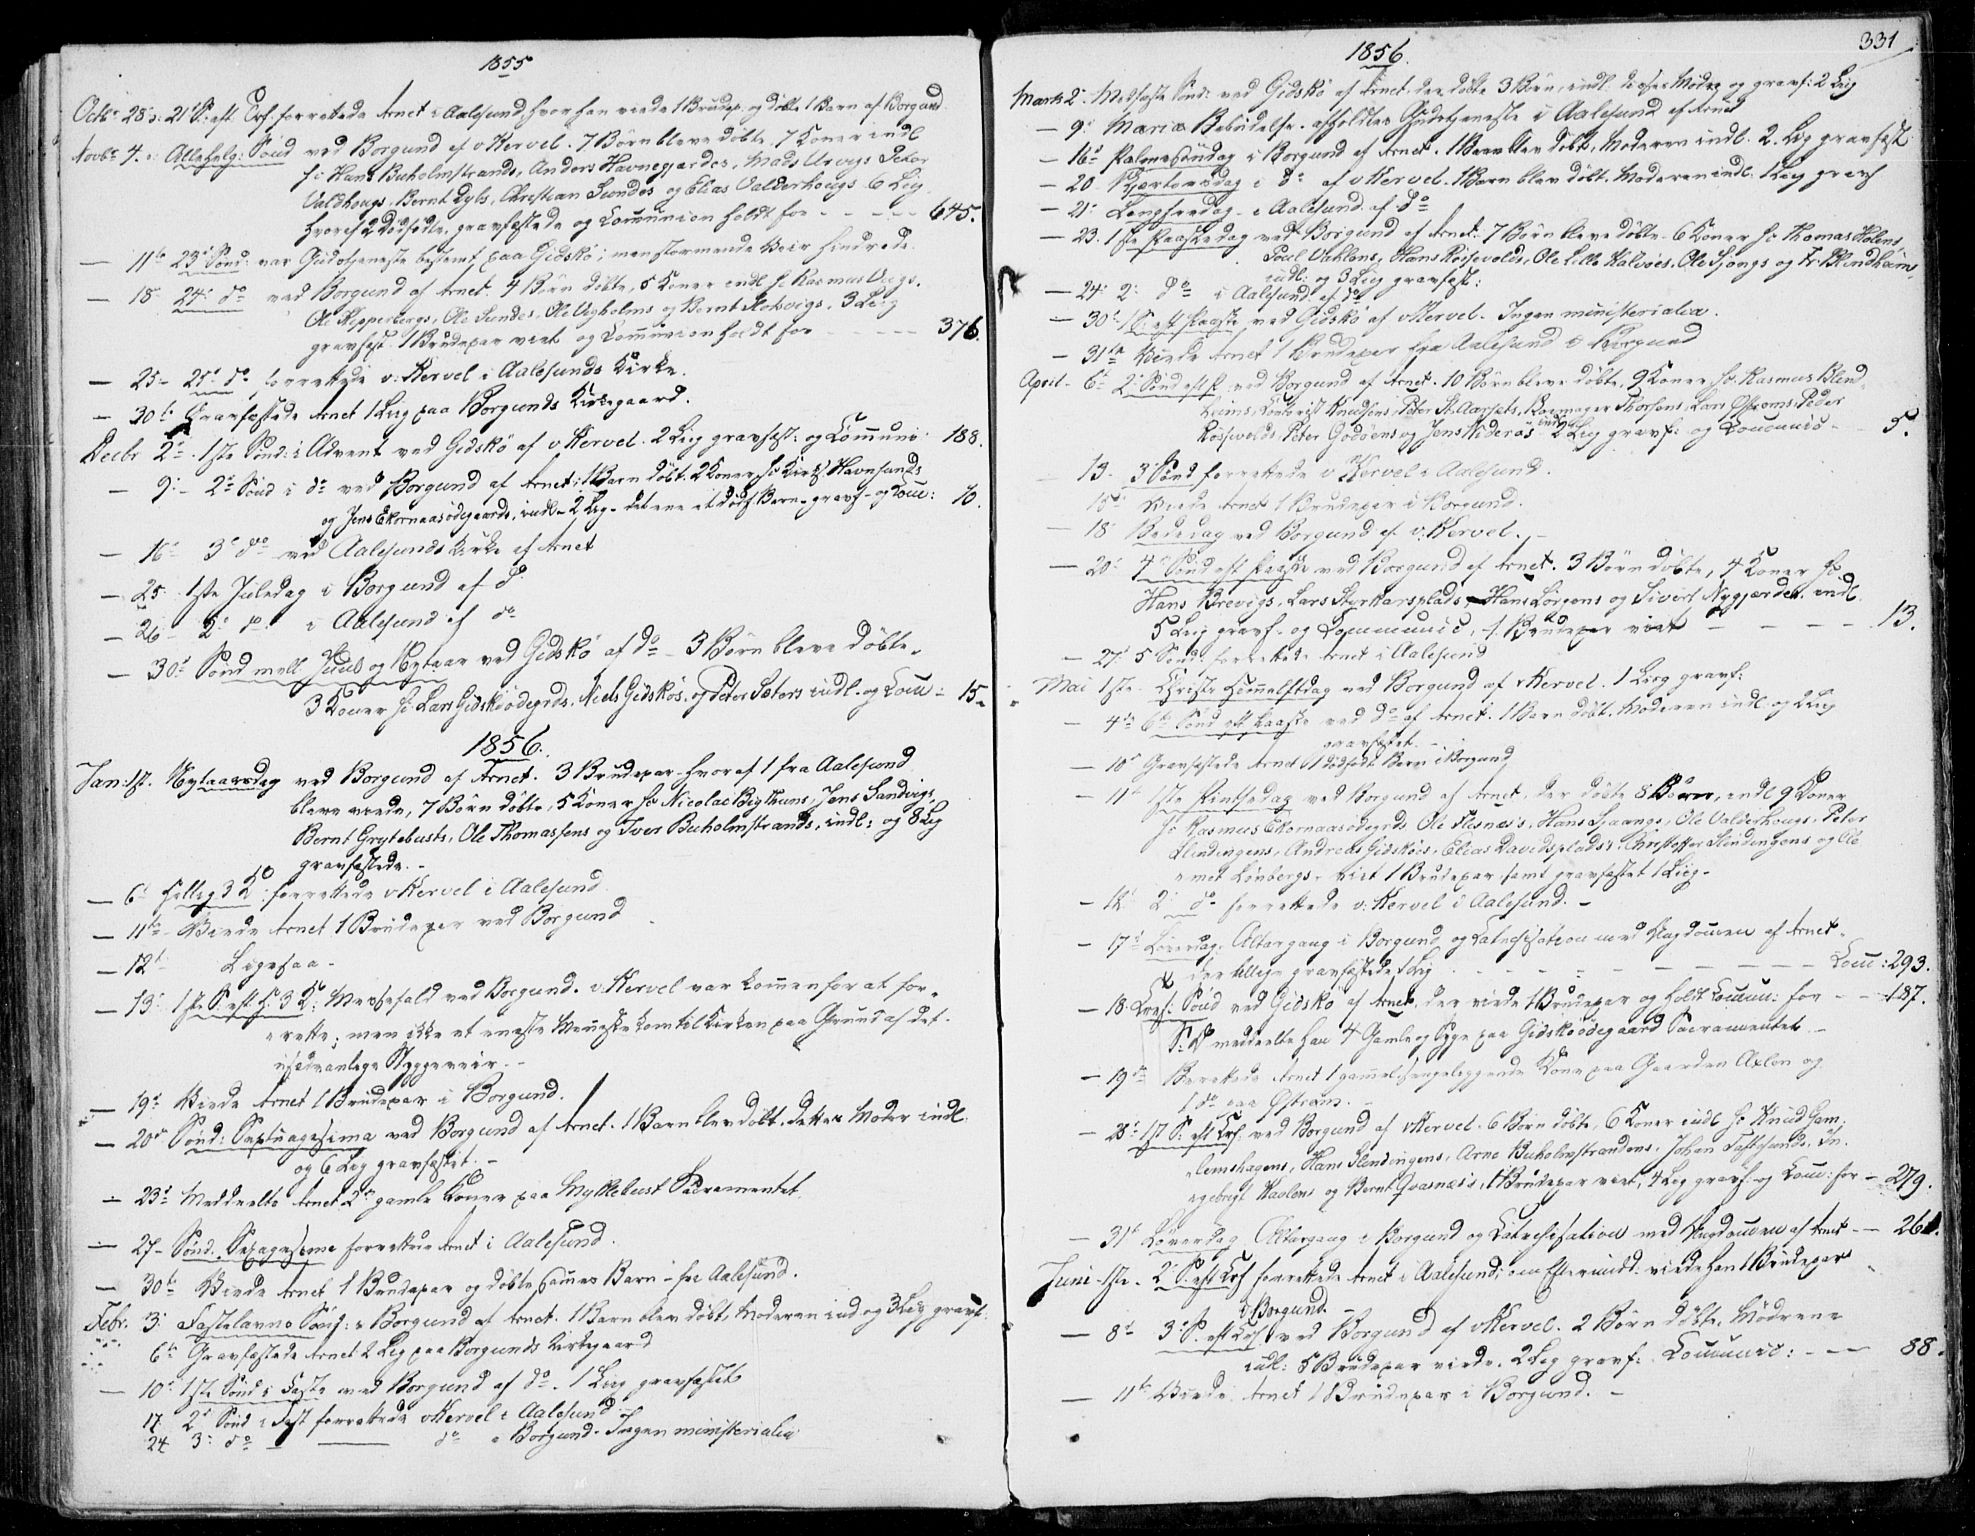 1855
Octbr 28 s: 21de S. eft. Trf. forrettede Arnet i Aalesund, hvor han viede 1 Brudep. og døbte 1 Barn af Borgund.
Novbr 4. Allehelg: Sönd ved Borgund af v Kervel. 7 Børn bleve döbte, 7 Koner indl
fr Hans Buholmstrands, Anders Havnegjærdes, Mads
Valdhougs, Bernt Dybs, Christian Sundes og Elias Valderhougs 6 Liig
hvoraf 2 dødfødte, gravfæstede og Communion holdt for - - - - - 645.
— 11te 23de Sönd: var Gudstjeneste bestemt paa Gidskö; men stormende Veir hindrede.
— 18 24: do ved Borgund af Arnet. 4 Börn döbte, 5 Koner indl fr Rasmus
Ole Klipperbergs, Ole Sundes, Ole Vegholms og Bernt Kokvigs. 3 Liig
gravfæst. 1 Brudepar viet og Communion holdt for - - - - - 376.
— 25 - 25de do forrettede v: Kervel i Aalesunds Kirke.
— 30te Gravfæstede Arnet 1 Liig paa Borgunds Kirkegaard.
Decbr 2de 1ste Sönd: i Advent ved Gidskö af v Kervel. 2 Liig gravfæst: og Communi: 188.
— 9: - 2de Sönd i do ved Borgund af Arnet: 1 Barn döbt. 2 Koner fr Havnsunds
og Jens Ekornaasödegaards, indl - 2 Lig - det ene et dødf Barn - gravf - og Com: 70.
— 16de 3de do ved Aalesunds Kirke af Arnet
— 25 1ste Juledag i Borgund af do
— 26 - 2: do i Aalesund af do
— 30te Sönd mell Juul og Nytaar ved Gidskö af do - 3 Börn bleve döbte.
3 Koner fr Lars Gidskøødegrds, Niels Gidskös, og Peter Sæters indl. og Com - 15.
1856.
Jan: 1st. Nytaarsdag ved Borgund af Arnet. 3 Brudepar hvoraf 1 fra Aalesund
bleve viede, 7 Börn döbte, 5 Koner fr Nicolai, Jens Sandvigs,
Bernt Grytebusts, Ole Thomassens og Iver Buholmstrands, indl: og 8 Lig
gravfæstede. -
— 6te Hellig 3 K: forrettede v Kervel i Aalesund.
— 11te - Viede Arnet 1 Brudepar ved Borgund
— 12te Ligesaa -
— 13: 1ste S. eft H. 3 K: Messefald ved Borgund. v: Kervel var kommen for at for-
rette; men ikke et eneste Menneske kom til Kirken paa Grund af det
usedvanlige Styggeveir. -
— 19de Viede Arnet 1 Brudepar i Borgund.
— 20de Sönd: Septuagesima ved Borgund af Arnet. 1 Barn blev döbt, dettes Moder indl.
og 6 Liig gravfæstet. -
— 23de Meddeelte Arnet 2de gamle Koner paa Myklebust Sacramentet.
— 27 - Sönd. Sexagesima forrettede Arnet i Aalesund.
— 30te Viede Arnet 1 Brudepar og döbte sammes Barn - fra Aalesund.
Febr. 3: Fastelavns Sönd: i Borgund af Arnet. 1 Barn blev döbt, Moderen ind. og 3 Lig gravf.
6te Gravfæstede Arnet 2 Lig paa Borgunds Kirkegaard
— 10: 1ste Sönd i Faste ved Borgund af do. 1 Liig gravfæstet
17 2de Sönd i Fast forrettede v Kervel i Aalesund
24 3: do — do i Borgund. Ingen ministerialia
1856. 331
Marts 2: Midfaste Sönd: ved Gidskö af Arnet, der døbte 3 Börn, indl. disses Mødre og gravf: 2 Liig
— 9: Mariæ Bebudelse. afholdtes Gudstjeneste i Aalesund af Arnet
— 16de Palmesöndag i Borgund af Arnet. 1 Barn blev döbt, Moderen indl. 2. Lig gravfæst
— 20 Skjærtorsdag i do af v Kervel. 1 Barn blev döbt. Moderen indl. 1 Liig gravf
— 21: Langfredag - i Aalesund af do
— 23. 1ste Paaskedag ved Borgund af Arnet. 7 Börn bleve döbte - 6 Koner fr Thomas Holens,
Poul Uhlens, Hans Röisevolds, Ole Lille Kalvöes, Ole Sjongs og Fr. Blindheim
indl: og 3 Liig gravfæst:
— 24: 2: do i Aalesund af do
— 30te 1 S: eft Paaske ved Gidskö af v Kervel. Ingen ministerialia.
— 31te Viede Arnet 1 Brudepar fra Aalesund i Borgund
April - 6te 2: Sönd eft P. ved Borgund af Arnet. 10 Börn bleve döbte, 9 Koner fr. Rasmus Blind-
heims, Contorist Knudsens, Peter St. Aarsets, Thorsens, Lars Ostrems, Peder
Röisevolds, Peter Godöens og Jens Hideraas indl 2 Liig gravf: og Communic - 5.
13 - 3 Sönd forrettede v Kervel i Aalesund.
15de Viede Arnet 1 Brudepar i Borgund.
— 18 Bededag ved Borgund af v: Kervel. -
— 20: 4de Sönd eft Paaske ved Borgund af Arnet. 3 Börn döbte, 4 Koner fr.
Hans Brevigs, Lars Styrkarsplads, Hans Lörgens og Sivert Nygjærdes. indl.
5 Liig gravf. og Communic, 1 Brudepar viet - - - - 13.
— 27: 5 Sönd: forrettede Arnet i Aalesund
Mai 1ste - Christi Himmelftdag ved Borgund af v Kervel. 1 Liig gravf:
— 4de 6te Sönd eft Paaske ved do af Arnet. 1 Barn döbt. Moderen indl. og 2 Liig
gravfæstet. -
— 10de Gravfæstede Arnet 1 dødfødt Barn i Borgund
— 11te 1ste Pintsedag ved Borgund af Arnet, der döbte 8 Börn, indl 9 Koner
fr Rasmus Ekornaasödegrds Ole Flesnes's, Hans Spaangs, Ole Valderhougs, Peter
Slindingens, Andreas Gidskös, Elias Davidsplads's, Christoffer Slindingens og Ole
Lönbergs. viet 1 Brudepar samt gravfæstet 1 Liig -
— 12 2: do forrettede v: Kervel i Aalesund. -
— 17de Löverdag. Altergang i Borgund og Catechisation med Ungdommen af Arnet.
der tillige gravfæstede 1 Lig - - - - - - Com: 293.
— 18 Tref: Sönd ved Gidskö af Arnet, der viede 1 Brudepar og holdt Commun: for - - 187.
S. D. meddeelte han 4 Gamle og Syge paa Gidskøödegaard Sacramentet -
— 19de Berettede Arnet 1 gammel sengeliggende Kone paa Gaarden Axlen og
1 do paa Östrem. -
— 25: 1st S: eft Trf: ved Borgund af v Kervel. 6 Börn döbte, 6 Koner indl fr Knud Gam-
lemshagens, Hans Slindingens, Arne Buholmstrandens, Johan Fiskesunds, In-
gebrigt Havlens og Bernt Qvasnæs's, 1 Brudepar viet, 4 Lig gravf. og Com: for - 279.
— 31te Löverdag Altergang i Borgund og Catechisation med Ungdommen af Arnet - - 261.
Juni 1ste - 2: S. eft Trf. forrettede Arnet i Aalesund; om Eftermidd: viede han 1 Brudepar
i Borgund. -
— 8de 3: S. eft Trf ved Borgund af v Kervel. 2 Börn döbte, Mødrene
indl: 5 Brudepar viede. 2 Lig gravf: Communic: - - - 88.
— 11te Viede Arnet 1 Brudepar i Borgund. -